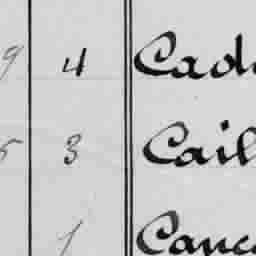 9 4 Cad
5 3 Cail
1 Canc